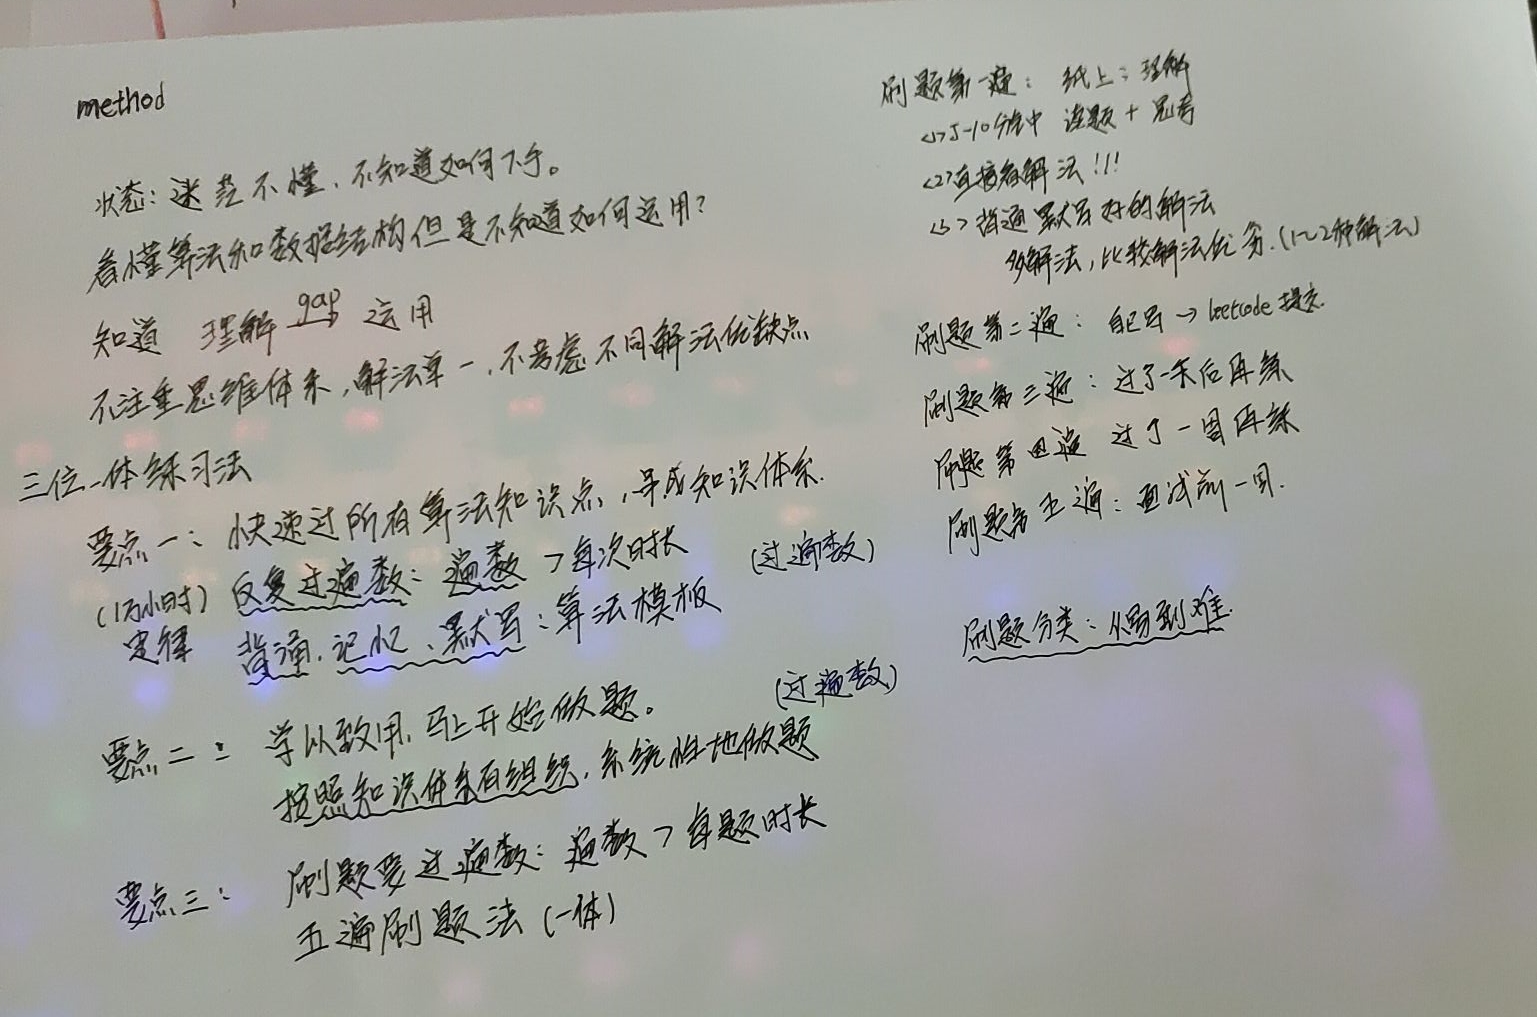 method
状态：迷茫不懂、不知道如何下手。
看懂算法和数据结构但是不知道如何运用？
知道 理解 gap→ 运用
不注重思维体系，解法单一，不考虑不同解法优缺点
三位一体练习法
要点一：快速过所有算法知识点，导成知识体系.
(1万小时) 反复过遍数：遍数 > 每次时长 (过遍数)
定律 背诵、记忆、默写：算法模板
要点二：学以致用，马上开始做题。 (过遍数)
按照知识体系有组织，系统性地做题
要点三：刷题要过遍数：遍数 > 每题时长
五遍刷题法 (一体)
刷题第一遍：纸上：理解
<1> 5-10分钟中 读题 + 思考
<2> 直接看解法!!!
<3> 背诵默写好的解法
多解法，比较解法优劣.(1~2种解法)
刷题第二遍：自己写 → leetcode 提交.
刷题第三遍：过了一天后再练
刷题第四遍 过了一周再练
刷题第五遍：面试前一周.
刷题分类：从易到难.